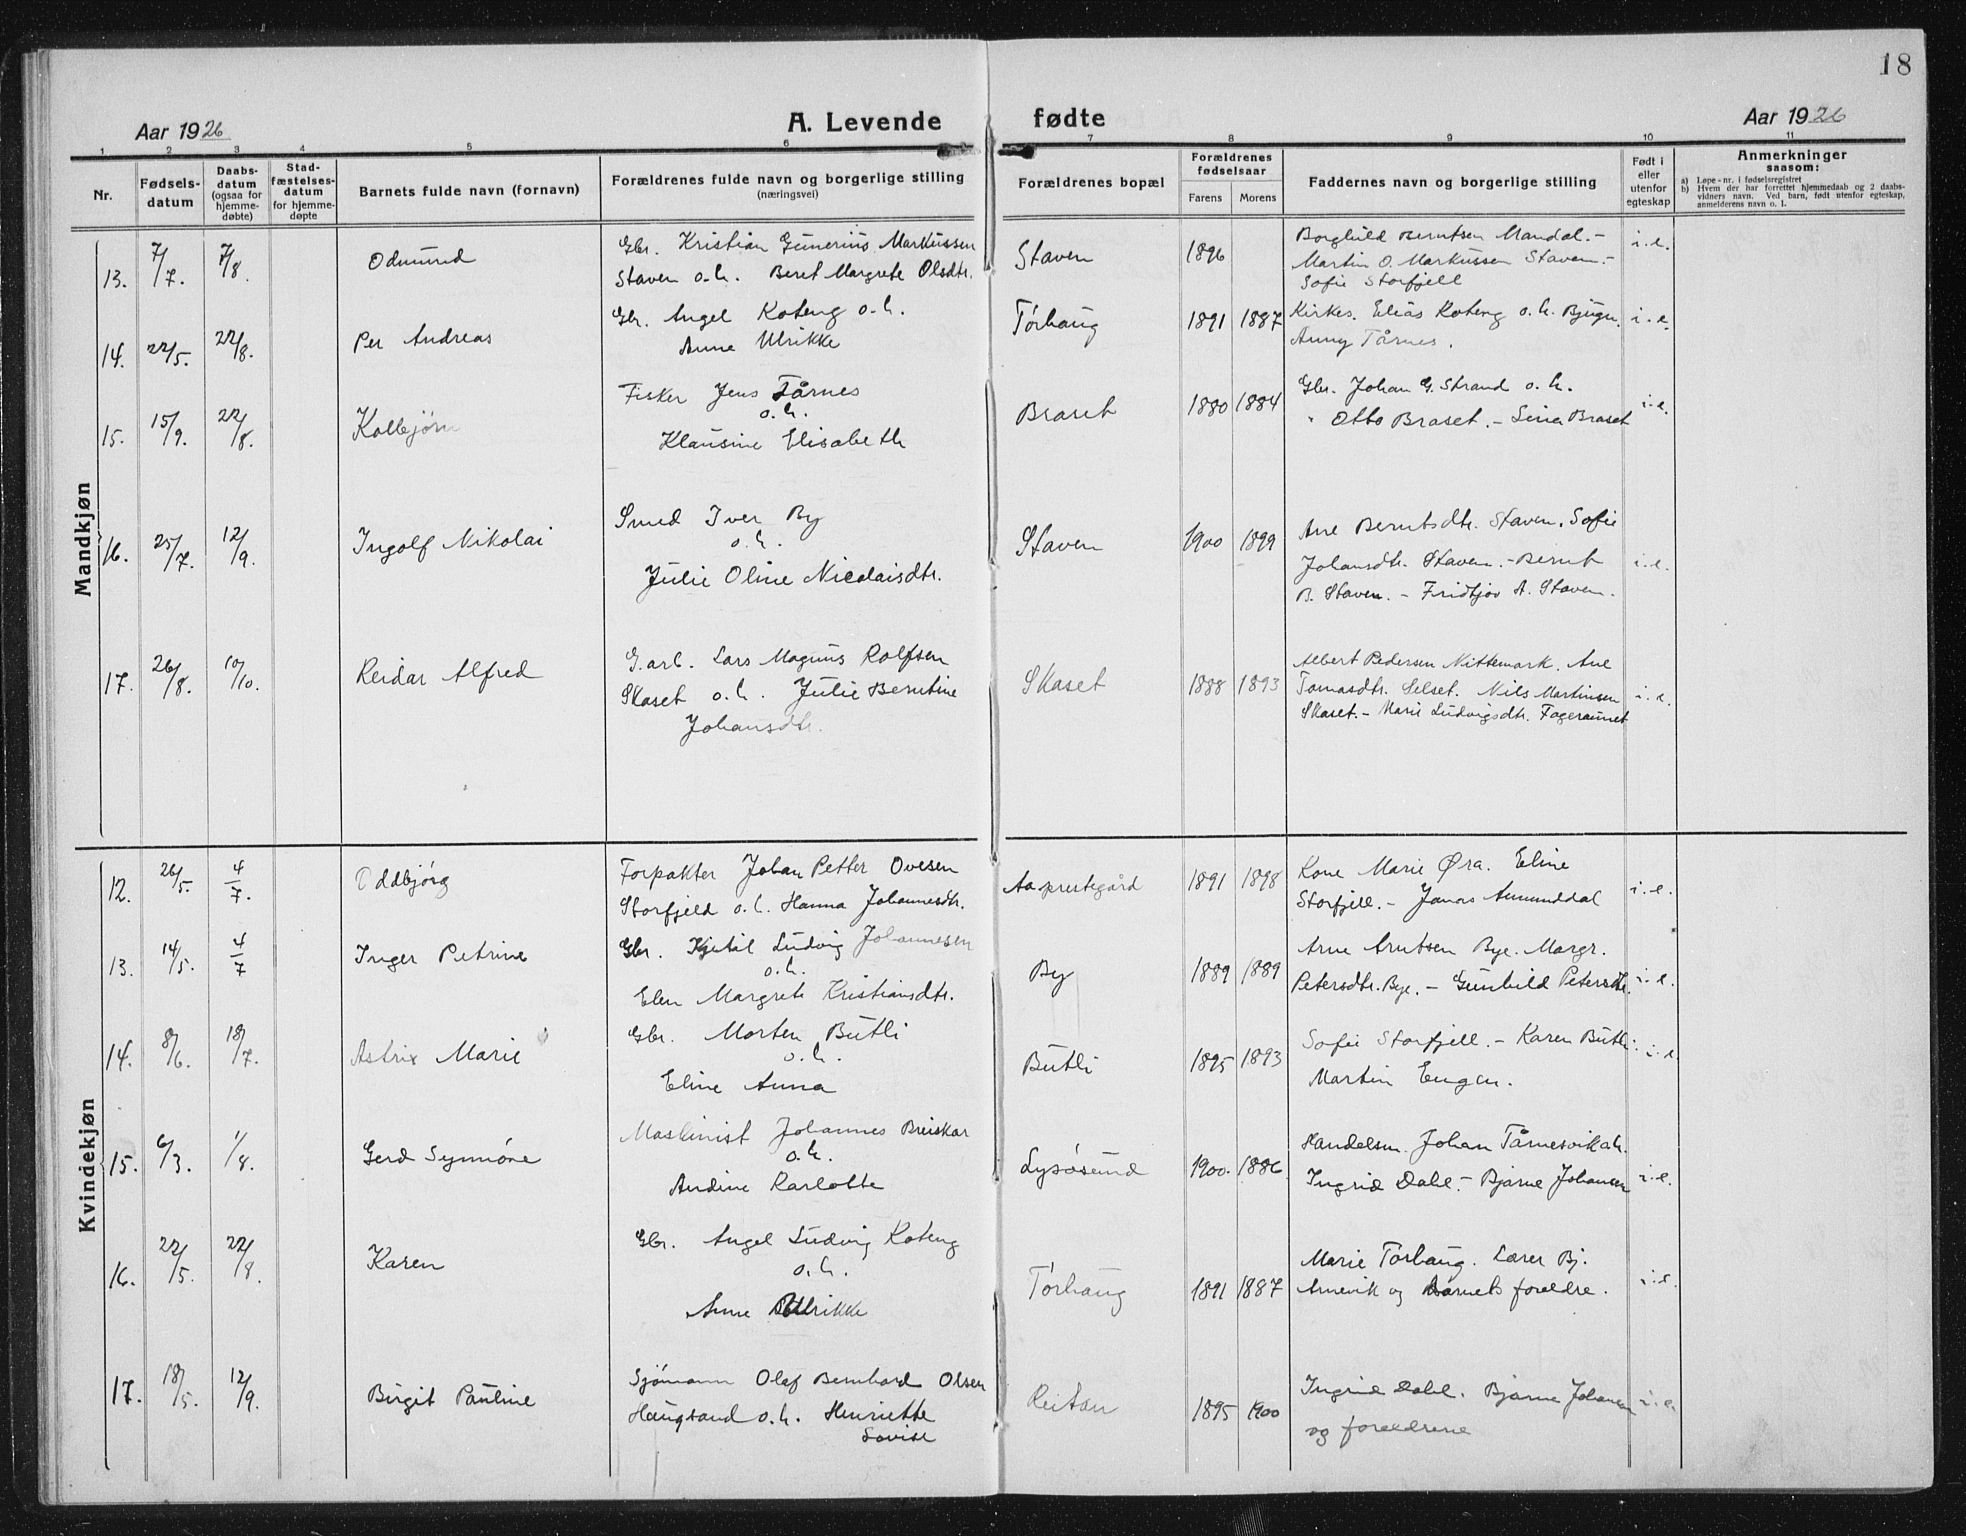 18
Aar 1926 A. Levende fødte Aar 1926
1 2 3 4 5 6 7 8 9 10 11
Nr. Fødsels-datum Daabs-datum (ogsaa for hjemme-døbte) Stad-fæstelses-datum for hjemme-døpte Barnets fulde navn (fornavn) Forældrenes fulde navn og borgerlige stilling (næringsvei) Forældrenes bopæl Forældrenes fødselsaar Farens Morens Faddernes navn og borgerlige stilling Født i eller utenfor egteskap Anmerkninger saasom:
a) Løpe-nr. i fødselsregistret
b) Hvem der har forrettet hjemmedaab og 2 daabs-
vidners navn. Ved barn, født utenfor egteskap,
anmelderens navn o. l.
Mandkjøn
13. 7/7. 7/8. Odmund Gbr. Kristian Gunerius Markussen Staven 1896 Borghild Berntsen Mandal. - i.e.
Staven o.h. Beret Margrete Olsdtr. Martin O. Markussen Staven. -
Sofie Storfjell
14. 22/5. 22/8. Per Andreas Gbr. Angel Koteng o.h. Tørhaug 1891 1887 Kirkes. Elias Koteng o.h. Bjugn. i.e.
Anne Ulrikke Anny Tårnes.
15. 15/9. 22/8. Kolbjørn Fisker Jens Tårnes Braset 1880 1884 Gbr. Johan G. Strand o.h. i.e.
o.h. " Otto Braset. - Lina Braset
Klausine Elisabeth
16. 25/7. 12/9. Ingolf Nikolai Smed Iver By Staven 1900 1899 Ane Berntsdtr. Staven. Sofie i.e.
o.h. Johansdtr. Staven. - Bernt
Julie Oline Nicolaisdtr. B. Staven. - Fridtjov A. Staven.
17. 26/8. 10/10. Reidar Alfred G.arb. Lars Magnus Rolfsen Skaset 1888 1893 Albert Pedersen Nittemark. Ane i.e.
Skaset o.h. Julie Berntine Tomasdtr. Selset. Nils Martinsen
Johansdtr. Skaset. - Marie Ludvigsdtr. Fageraunet
Kvindekjøn
12. 26/5. 4/7. Oddbjørg Forpakter Johan Petter Ovesen Aa prestegård 1891 1898 Kone Marie Øra. Eline i.e.
Storfjeld o.h. Hanna Johannesdtr. Storfjell. - Jonas Amunddal
13. 14/5. 4/7 Inger Petrine Gbr. Kjetil Ludvig Johannesen By 1889 1889 Arne Arntsen Bye. Margr. i.e.
o.h. Petersdtr. Bye. - Gunhild Petersdtr.
Elen Margrete Kristiansdtr.
14. 8/6. 18/7. Astrix Marie Gbr. Morten Butli Butli 1895 1893 Sofie Storfjell. - Karen Butli. i.e.
o.h. Martin Engen.
Eline Anna
15. 6/3. 1/8. Gerd Synnöve Maskinist Johannes Breiskar Lysøsund 1900. 1886 Handelsm. Johan Tårnesvik o.h. i.e.
o.h. Ingrid Dahl. - Bjarne Johansen
Andine Karlotte
16. 22/5. 22/8. Karen Gbr. Angel Ludvig Koteng Tørhaug 1891 1887 Marie Tørhaug. Lærer Bj. i.e.
o.h. Arnevik og barnets foreldre.
Anne Ulrikke
17. 18/5. 12/9. Birgit Pauline Sjömann Olaf Bernhard Olsen Reitan 1895 1900 Ingrid Dahl. Bjarne Johansen i.e.
Haugsand o.h. Henriette og foreldrene
Lovise